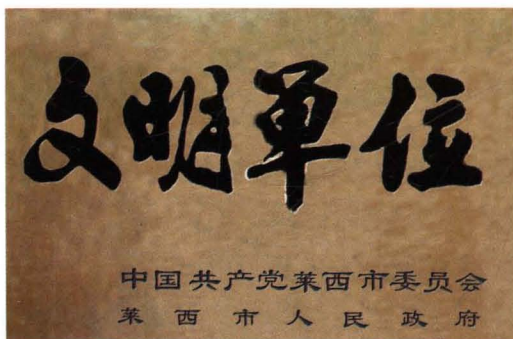 文明单位
中国共产党莱西市委员会
莱西市人民政府